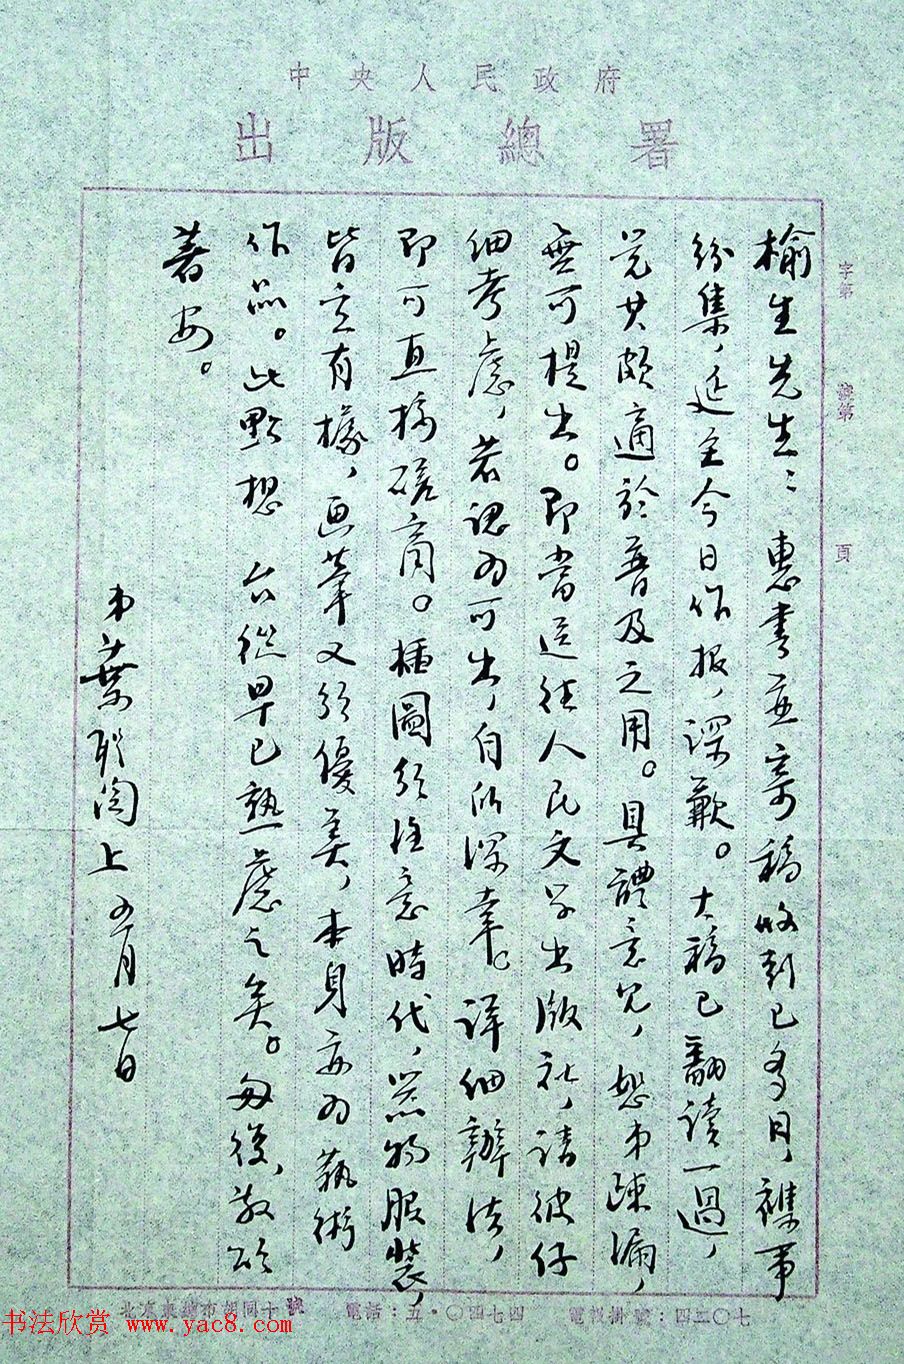 中央人民政府
出版總署
字第 號第 頁
榆生先生：惠書並寄稿收到已多日，襍事
紛集，延至今日作报，深歉。大稿已翻读一過，
覺其頗適於普及之用。具體意見，恕弟疎漏，
無可提出。即當送往人民文学出版社，請彼仔
细考慮，若認为可出，自所深幸。詳细辦法，
即可直接磋商。插圖須注意時代，器物服裝，
皆应有據，画筆又須優美，本身亦为藝術
作品。此點想 台從早已熟慮之矣。匆復，敬頌
著安。
弟葉聖陶上 五月七日
北京東總布胡同十號 電話：五·〇四七四 電報掛號：四二〇七
书法欣赏 www.yac8.com